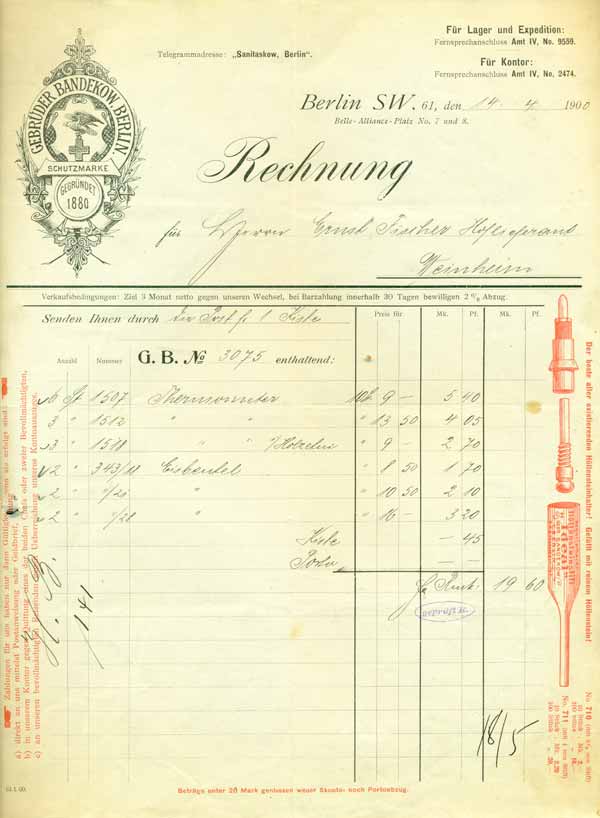 Für Lager und Expedition:
Fernsprechanschloss Amt IV, No. 9589.
Telegrammadresse: „Sanitaskow, Berlin".
Für Kontor:
Fernsprechanschloss Amt IV, No. 2474.
GEBRÜDER BANDEKOW, BERLIN
SCHUTZMARKE
GEGRÜNDET
1880
Berlin SW. 61, den 14. 4 1900
Belle-Alliance-Platz No. 7 und 8.
Rechnung
für Herrn Ernst Fischer Hoflieferant
Weinheim
Verkaufsbedingungen: Ziel 3 Monat netto gegen unseren Wechsel, bei Barzahlung innerhalb 30 Tagen bewilligen 2% Abzug.
Senden Ihnen durch die Post fr 1 Kiste Preis für Mk. Pf. Mk. Pf.
Anzahl Nummer G. B. No 3075 enthaltend:
6 St 1507 Thermometer 10St 9 — 5 40
3 " 1512 " " " 13 50 4 05
3 " 1518 " " " 9 — 2 70
2 " 343/18 Eisbeutel " 8 50 1 70
2 " "/20 " " 10 50 2 10
2 " "/28 " " 16 — 3 20
Kiste — 45
Porto — —
19 60
141
18/5
Beträge unter 20 Mark geniessen weder Skonto- noch Portoabzug.
Der beste aller existierenden Höllensteinhalter! Gefüllt mit reinem Höllenstein!
"Ideal"
No 710
No. 711
Zahlungen für uns haben nur dann Gültigkeit, wenn sie erfolgt sind:
a) direkt an uns mittelst Postanweisung oder Geldbrief,
b) in unserem Kontor gegen Quittung eines der beiden Chefs oder zweier Bevollmächtigten,
c) an unseren bevollmächtigten Reisenden gegen Ueberreichung unseres Kontoauszuges.